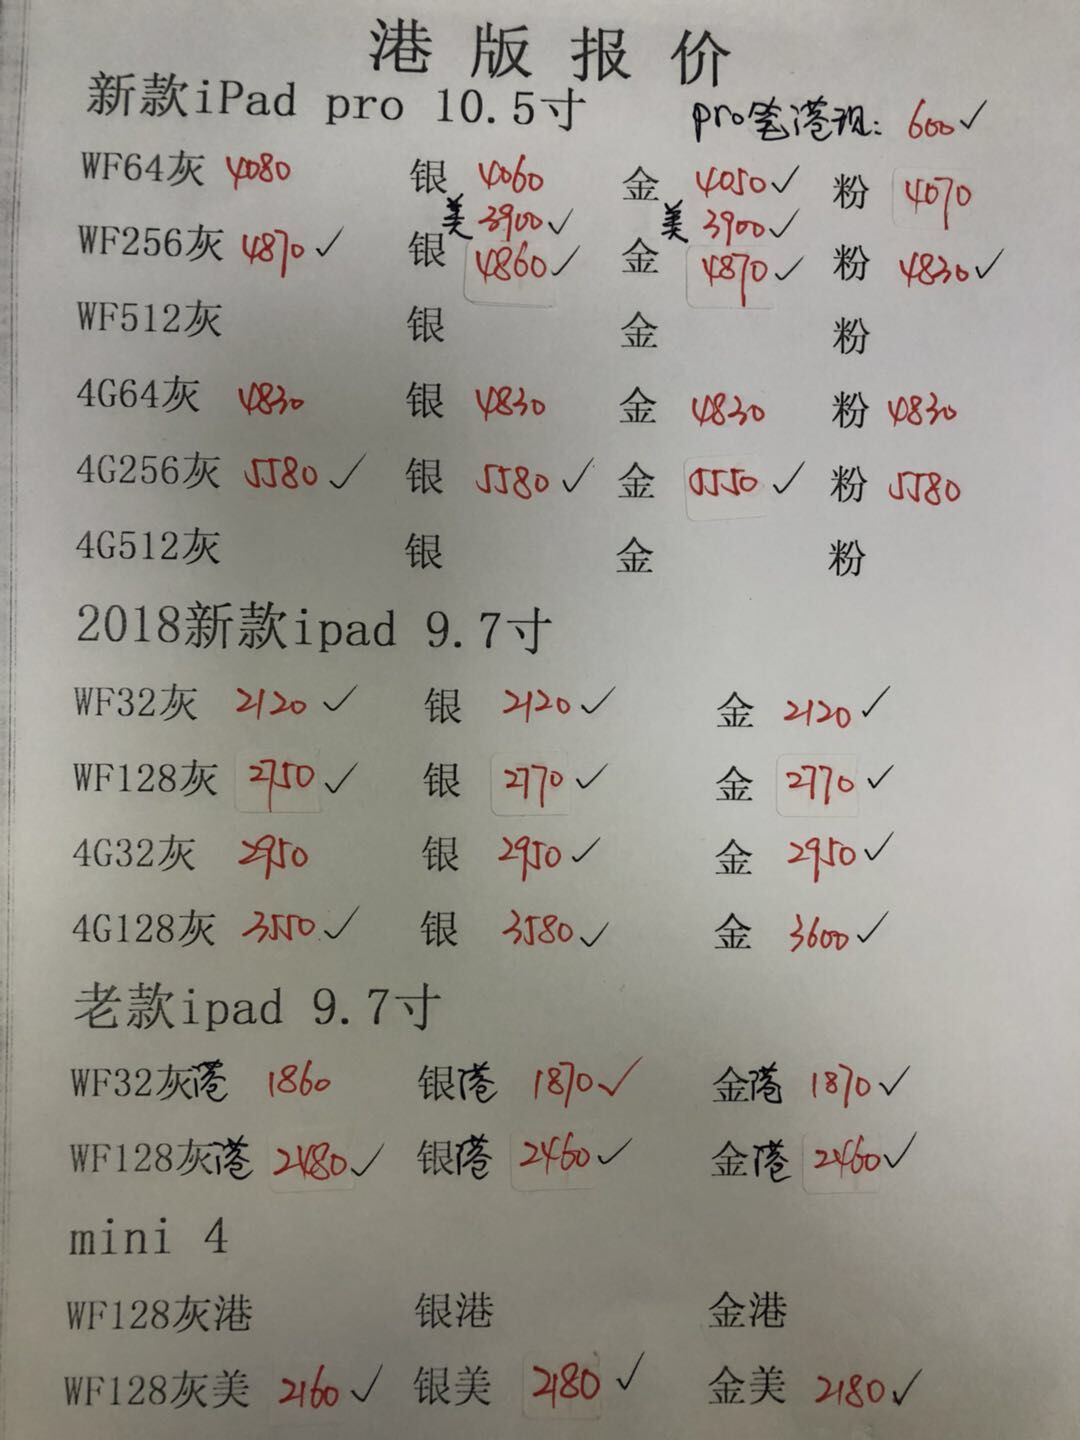 港版报价
新款iPad pro 10.5寸 pro笔港现: 600✓
WF64灰 4080 银 4060 金 4050✓ 粉 4070
美 3900✓ 美 3900✓
WF256灰 4870✓ 银 4860✓ 金 4870✓ 粉 4830✓
WF512灰 银 金 粉
4G64灰 4830 银 4830 金 4830 粉 4830
4G256灰 5580✓ 银 5580✓ 金 5550✓ 粉 5580
4G512灰 银 金 粉
2018新款ipad 9.7寸
WF32灰 2120✓ 银 2120✓ 金 2120✓
WF128灰 2750✓ 银 2770✓ 金 2770✓
4G32灰 2950 银 2950✓ 金 2950✓
4G128灰 3550✓ 银 3580✓ 金 3600✓
老款ipad 9.7寸
WF32灰港 1860 银港 1870✓ 金港 1870✓
WF128灰港 2480✓ 银港 2460✓ 金港 2460✓
mini 4
WF128灰港 银港 金港
WF128灰美 2160✓ 银美 2180✓ 金美 2180✓